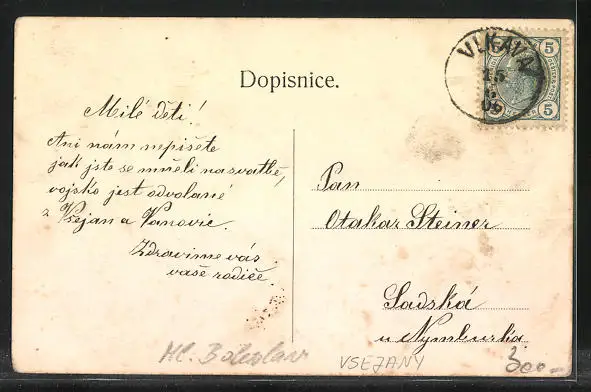 Dopisnice.
VLKAVA
15
06
5 5
5 5
Milé děti!
Ani nám nepišete
jak jste se měli na svatbě,
vojsko jest odvolané
z Všejan a Vanovic.
Zdravíme vás
vaše rodiče.
Pan
Otakar Steiner
Sadská
u Nymburka
Ml. Boleslav
VSEJANY
300-